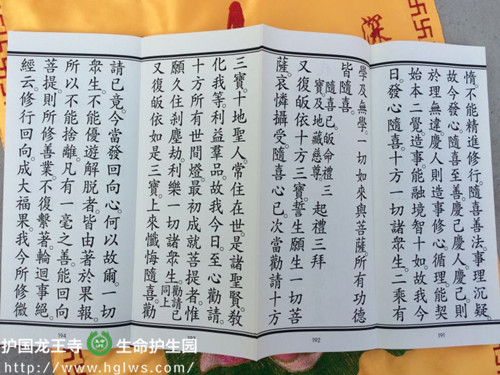 深
惰不能精進修行。隨喜善法。事理沉疑。
故今發心隨喜至善。慶己慶人。慶己則
於理無違。慶人則造事修心。循理能契
始本二覺。造事能融境智十如。故我今
日。發心隨喜。十方一切諸衆生。二乘有
191
學及無學。一切如來與菩薩。所有功德
皆隨喜。
隨喜已皈命禮三
寶及地藏慈尊
起禮三拜
又復皈依十方三寶。誓生願生一切菩
薩。哀憐攝受。隨喜心已。次當勸請十方
192
三寶。十地聖人。常住在世。是諸聖賢。敎
化我等。利益羣品。故我今日。至心勸請。
十方所有世間燈。最初成就菩提者。惟
願久住剎塵劫。利樂一切諸衆生。勸請已同上
又復皈依如是三寶。上來懺悔隨喜。勸
193
請已竟。今當發回向心。何以故爾。一切
衆生。不能優遊解脫者。皆由著於果報。
所以不能捨離。凡有一毫之善。能回向
菩提。則所修善業。不復繫著。輪迴事絕。
經云。修行回向。成大福果。我今所修微
194
护国龙王寺 生命护生园
http://www.hglws.com